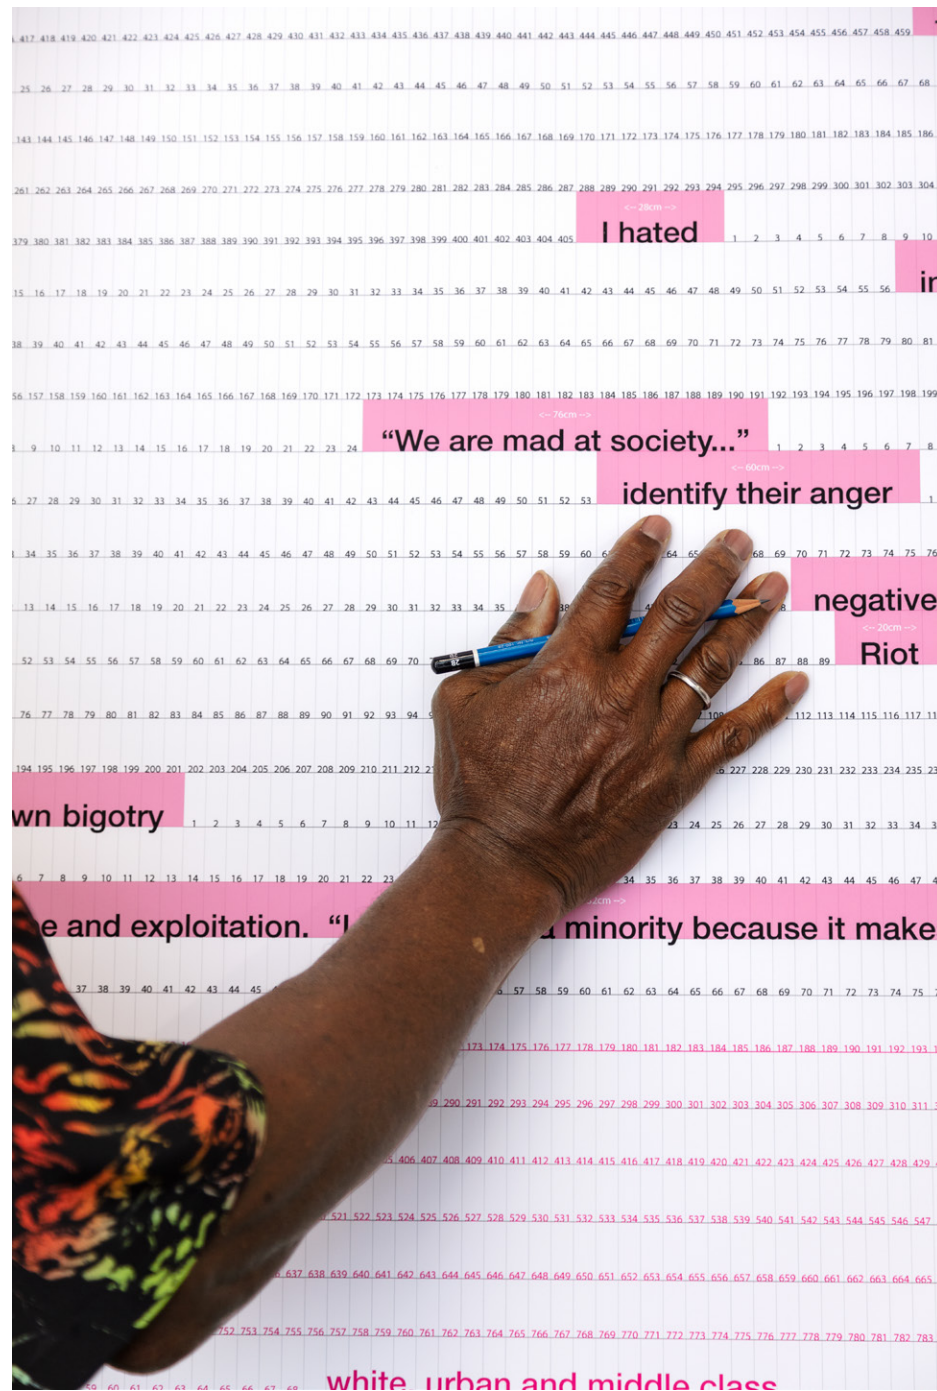 417 418 419 420 421 422 423 424 425 426 427 428 429 430 431 432 433 434 435 436 437 438 439 440 441 442 443 444 445 446 447 448 449 450 451 452 453 454 455 456 457 458 459
25 26 27 28 29 30 31 32 33 34 35 36 37 38 39 40 41 42 43 44 45 46 47 48 49 50 51 52 53 54 55 56 57 58 59 60 61 62 63 64 65 66 67 68
143 144 145 146 147 148 149 150 151 152 153 154 155 156 157 158 159 160 161 162 163 164 165 166 167 168 169 170 171 172 173 174 175 176 177 178 179 180 181 182 183 184 185 186
261 262 263 264 265 266 267 268 269 270 271 272 273 274 275 276 277 278 279 280 281 282 283 284 285 286 287 288 289 290 291 292 293 294 295 296 297 298 299 300 301 302 303 304
<-- 28cm -->
379 380 381 382 383 384 385 386 387 388 389 390 391 392 393 394 395 396 397 398 399 400 401 402 403 404 405 I hated 1 2 3 4 5 6 7 8 9 10
15 16 17 18 19 20 21 22 23 24 25 26 27 28 29 30 31 32 33 34 35 36 37 38 39 40 41 42 43 44 45 46 47 48 49 50 51 52 53 54 55 56
38 39 40 41 42 43 44 45 46 47 48 49 50 51 52 53 54 55 56 57 58 59 60 61 62 63 64 65 66 67 68 69 70 71 72 73 74 75 76 77 78 79 80 81
56 157 158 159 160 161 162 163 164 165 166 167 168 169 170 171 172 173 174 175 176 177 178 179 180 181 182 183 184 185 186 187 188 189 190 191 192 193 194 195 196 197 198 199
<-- 76cm -->
9 10 11 12 13 14 15 16 17 18 19 20 21 22 23 24 “We are mad at society...” 1 2 3 4 5 6 7 8
<-- 60cm -->
27 28 29 30 31 32 33 34 35 36 37 38 39 40 41 42 43 44 45 46 47 48 49 50 51 52 53 identify their anger 1
34 35 36 37 38 39 40 41 42 43 44 45 46 47 48 49 50 51 52 53 54 55 56 57 58 59 60 64 68 69 70 71 72 73 74 75 76
13 14 15 16 17 18 19 20 21 22 23 24 25 26 27 28 29 30 31 32 33 34 35 negative
<-- 20cm -->
52 53 54 55 56 57 58 59 60 61 62 63 64 65 66 67 68 69 70 86 87 88 89 Riot
76 77 78 79 80 81 82 83 84 85 86 87 88 89 90 91 92 93 94 112 113 114 115 116 117
194 195 196 197 198 199 200 201 202 203 204 205 206 207 208 209 210 211 212 227 228 229 230 231 232 233 234 235
wn bigotry 1 2 3 4 5 6 7 8 9 10 11 12 24 25 26 27 28 29 30 31 32 33 34
6 7 8 9 10 11 12 13 14 15 16 17 18 19 20 21 22 23 34 35 36 37 38 39 40 41 42 43 44 45 46 47
e and exploitation. “I minority because it make
37 38 39 40 41 42 43 44 45 57 58 59 60 61 62 63 64 65 66 67 68 69 70 71 72 73 74 75
173 174 175 176 177 178 179 180 181 182 183 184 185 186 187 188 189 190 191 192 193
290 291 292 293 294 295 296 297 298 299 300 301 302 303 304 305 306 307 308 309 310 311
406 407 408 409 410 411 412 413 414 415 416 417 418 419 420 421 422 423 424 425 426 427 428 429
521 522 523 524 525 526 527 528 529 530 531 532 533 534 535 536 537 538 539 540 541 542 543 544 545 546 547
637 638 639 640 641 642 643 644 645 646 647 648 649 650 651 652 653 654 655 656 657 658 659 660 661 662 663 664 665
752 753 754 755 756 757 758 759 760 761 762 763 764 765 766 767 768 769 770 771 772 773 774 775 776 777 778 779 780 781 782 783
59 60 61 62 63 64 65 66 67 68 white, urban and middle class